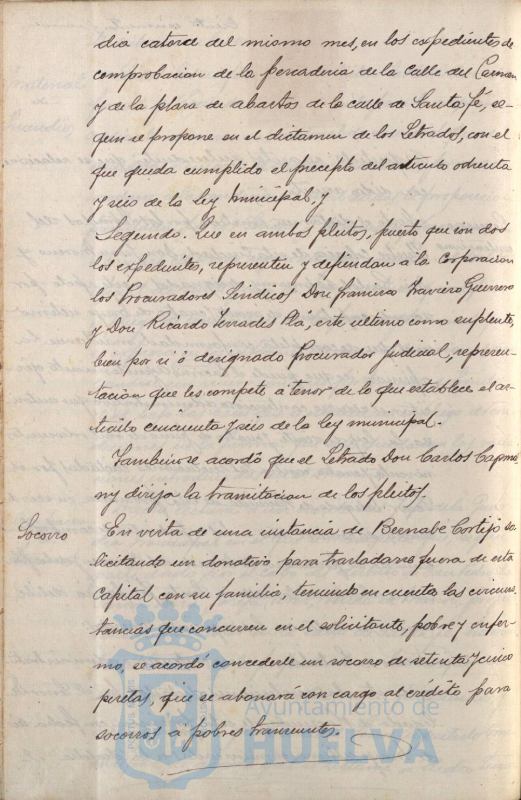 dia catorce del mismo mes, en los expedientes de
comprobacion de la pescaderia de la calle del Carmen
y de la plaza de abastos de la calle de Santa Fé, se-
gun se propone en el dictamen de los Letrados, con el
que queda cumplido el precepto del articulo ochenta
y seis de la ley municipal, y
Segundo. Que en ambos pleitos, puesto que son dos
los expedientes, representen y defiendan á la Corporacion
los Procuradores Sindicos Don Francisco Traviero Guerrero
y Don Ricardo Terrades Plá, este ultimo como suplente,
bien por si ó designado Procurador Judicial, represen-
tacion que les compete á tenor de lo que establece el ar-
ticulo cincuenta y seis de la ley municipal.
Tambien se acordó que el Letrado Don Carlos
ny dirija la tramitacion de los pleitos.
Socorro
En vista de una instancia de Bernabe Cortijo so-
licitando un donativo para trasladarse fuera de esta
Capital con su familia, teniendo en cuenta las circuns-
tancias que concurren en el solicitante, pobre y enfer-
mo, se acordó concederle un socorro de setenta y cinco
pesetas, que se abonará con cargo al crédito para
socorros á pobres transeuntes.
Ayuntamiento de
HUELVA